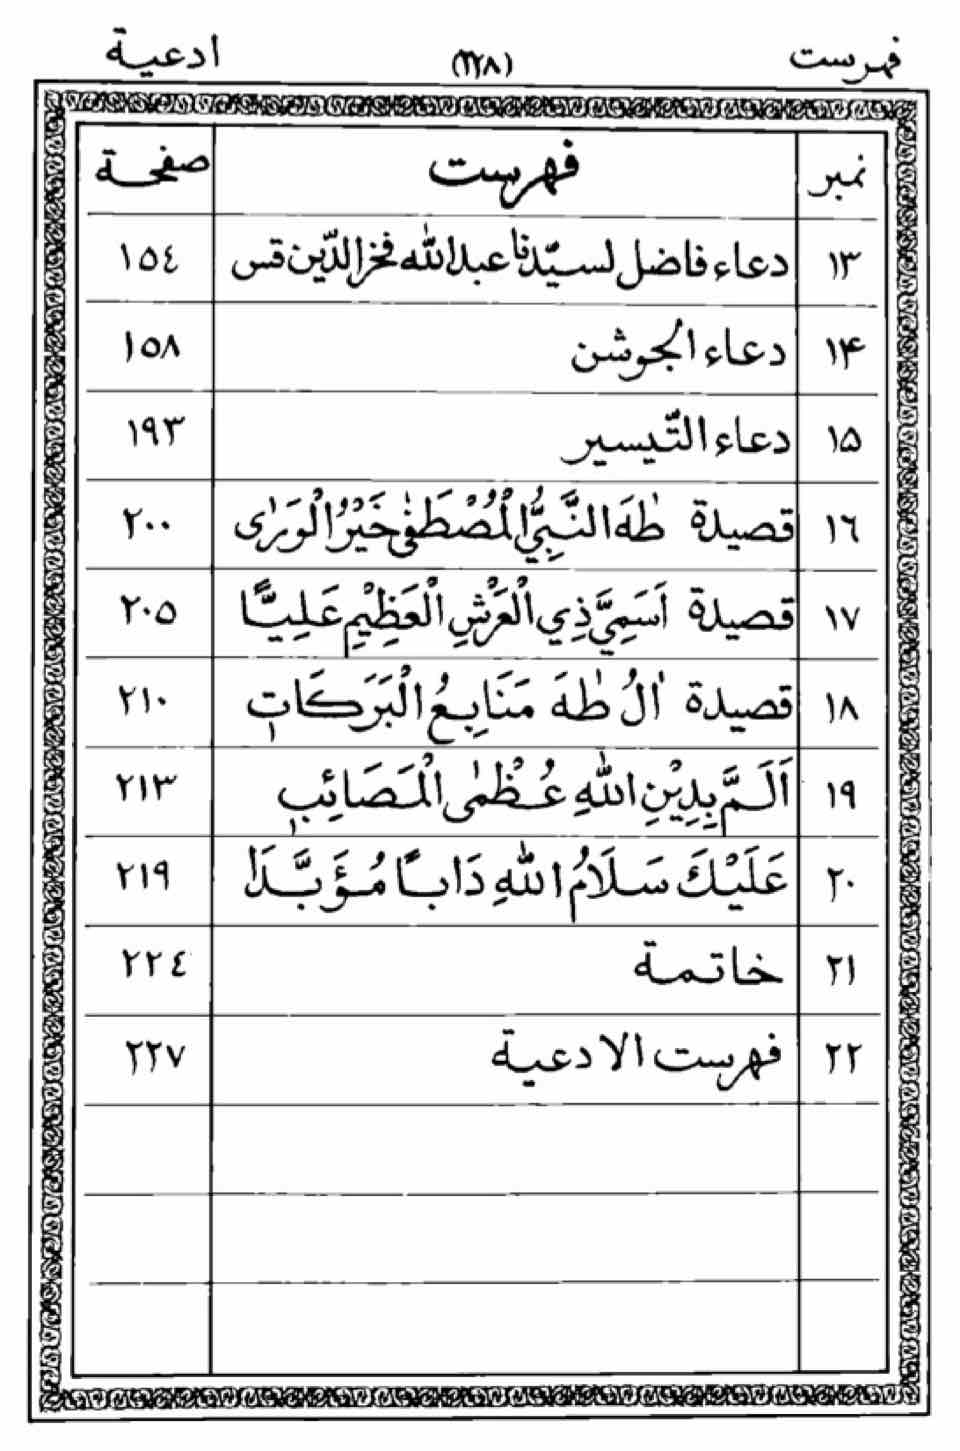 فهرست (٢٢٨) ادعية
نمبر فهرست صفحة
١٣ دعاء فاضل لسيّدنا عبد الله فخر الدّين قس ١٥٤
١۴ دعاء الجوشن ١٥٨
١٥ دعاء التّيسير ١٩٣
١٦ قصيدة طٰهَ النَّبِيُّ الْمُصْطَفٰى خَيْرُ الْوَرٰى ٢٠٠
١٧ قصيدة اَسَمِيَّ ذِي الْعَرْشِ الْعَظِيْمِ عَلِيًّا ٢٠٥
١٨ قصيدة اٰلُ طٰهَ مَنَابِعُ الْبَرَكَاتِ ٢١٠
١٩ اَلَمَّ بِدِيْنِ اللهِ عُظْمٰى الْمَصَائِبِ ٢١٣
٢٠ عَلَيْكَ سَلَامُ اللهِ دَابًا مُؤَبَّدَا ٢١٩
٢١ خاتمة ٢٢٤
٢٢ فهرست الادعية ٢٢٧